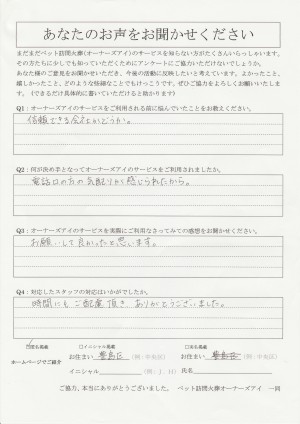 あなたのお声をお聞かせください
まだまだペット訪問火葬(オーナーズアイ)のサービスを知らない方がたくさんいらっしゃいます。
その方たちに少しでも知っていただくためにアンケートにご協力いただけないでしょうか。
あなた様のご意見をお聞かせいただき、今後の活動に反映したいと考えています。よかったこと、
嬉しかったこと、どのような些細なことでもけっこうです。ぜひご協力をよろしくお願いいたしま
す。(できるだけ具体的に書いていただけると助かります)
Q1:オーナーズアイのサービスをご利用される前に悩んでいたことをお教えください。
信頼できる会社かどうか。
Q2:何が決め手となってオーナーズアイのサービスをご利用されましたか。
電話口の方の気配りが感じられたから。
Q3:オーナーズアイのサービスを実際にご利用なさってみての感想をお聞かせください。
お願いして良かったと思います。
Q4:対応したスタッフの対応はいかがでしたか。
時間にもご配慮頂きありがとうございました。
匿名掲載 □イニシャル掲載 □実名掲載
ホームページでご紹介 お住まい 豊島区 (例:中央区) お住まい 豊島区 (例:中央区)
イニシャル (例:J.H) 氏名
ご協力、本当にありがとうございました。 ペット訪問火葬オーナーズアイ 一同